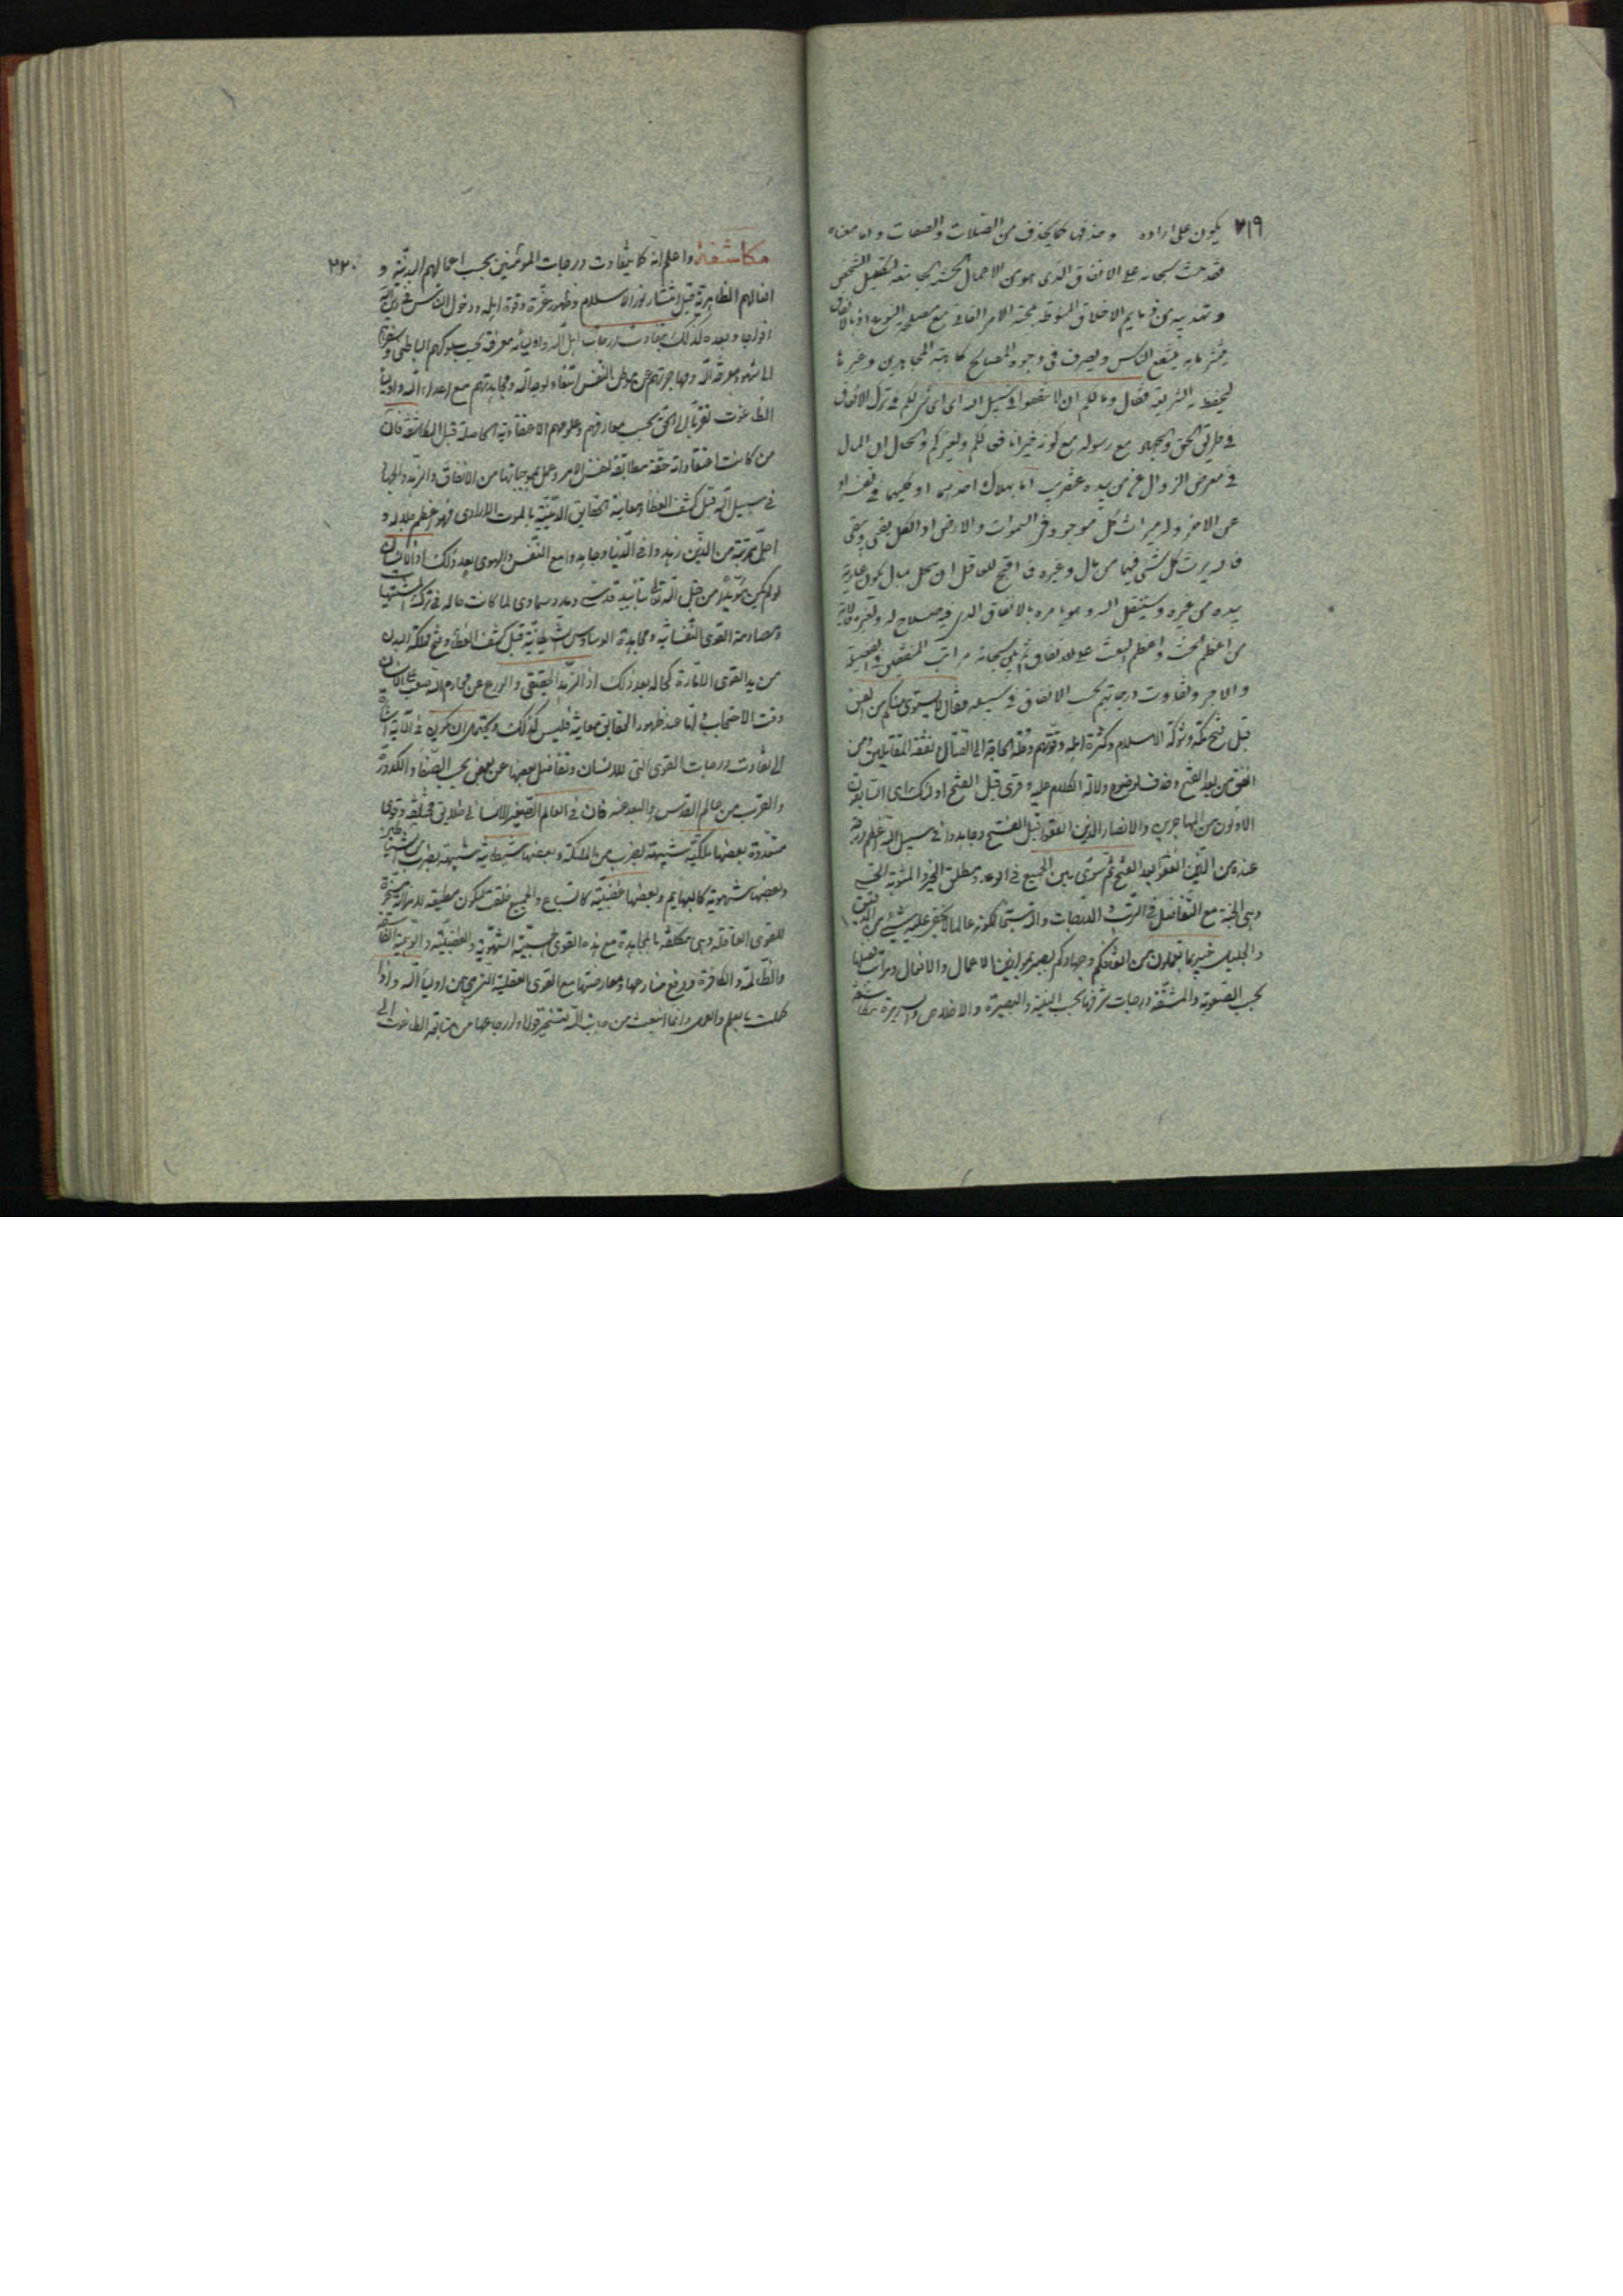 ٢١٩
يكون على ارادة وحذفها كما يحذف من الصلات والصفات واما معناه
فقد حث سبحانه على الانفاق الذى هو من الاعمال الحسنة الجامعة لتكميل الشخص
وتهذيبه عن ذمايم الاخلاق المنوطة بمحبة الامر الفانى مع مصلحة النوع اذ بالانفاق
ينتفع الناس ويصرف فى وجوه المصالح كاهبة المجاهدين وغيرها
ليحفظ به الشريعة فقال وما لكم ان لا تنفقوا فى سبيل الله اى اى شىء لكم فى ترك الانفاق
فى طريق الحق والجهاد مع رسوله مع كونه خيرا نافعا لكم ولغيركم والحال ان المال
فى معرض الزوال عمن بيده عنقريب اما بهلاك احدهما او كليهما فى نفسه او
عن الاخر ولله ميراث كل موجود فى السموات والارض اذ الكل يفنى ويبقى
فانه يرث كل شىء فيهما من مال وغيره فما اقبح للعاقل ان يبخل بمال يكون عارية
بيده من غيره وسينتقل اليه وهو يأمره بالانفاق الذى فيه صلاح له ولغيره فالآية
من اعظم الحث واعظم البعث على الانفاق ثم بين سبحانه مراتب المنفقين فى الفضيلة
والاجر وتفاوت درجاتهم بحسب الانفاق فى سبيله فقال لا يستوى منكم من انفق
قبل فتح مكة وشوكة الاسلام وكثرة اهله وقوتهم وقلة الحاجة الى القتال ونفقة المقاتلين ومن
انفق من بعد الفتح وحذف لوضوح دلالة الكلام عليه وقرئ قبل الفتح اولئك اى السابقون
الاولون من المهاجرين والانصار الذين انفقوا قبل الفتح وجاهدوا فى سبيل الله اعظم درجة
عنده من الذين انفقوا بعد الفتح ثم سوى بين الجميع فى الوعد بمطلق الخير والمثوبة الحسنى
وهى الجنة مع التفاضل فى الرتب والدرجات والله سبحانه لكونه عالما لا يخفى عليه شىء من الدقيق
والجليل خبير بما تعملون من انفاقكم وجهادكم بصير بموازين الاعمال والافعال ومراتب فضلها
بحسب الصعوبة والمشقة ودرجات شرفها بحسب النية والبصيرة والاخلاص والسريرة مكاشفة
٢٢٠
مكاشفة واعلم انه كما يتفاوت درجات المؤمنين بحسب اعمالهم البدنية و
افعالهم الظاهرية قبل انتشار نور الاسلام وظهور عزة وقوة اهله ودخول الناس فى دين الله
افواجا وبعده كذلك يتفاوت درجات اهل الله واوليائه معرفة بحسب سلوكهم الباطنى وسفرهم
الى شهود معرفة الله ومهاجرتهم عن موطن النفس ابتغاء لوجه الله ومجاهدتهم مع اعداء الله واولياء
الطاغوت تقربا الى الحق بحسب معارفهم وعلومهم الاعتقادية الحاصلة قبل المكاشفة فان
من كانت اعتقاداته حقة مطابقة لنفس الامر وعمل بموجباتها من الانفاق والزهد والجهاد
فى سبيل الله قبل كشف الغطاء ومعاينة الحقايق الدينية بالموت الارادى فهو اعظم جلالة و
اجل مرتبة من الذين زهدوا فى الدنيا وجاهدوا مع النفس والهوى بعد ذلك اذ الانسان
لو لم يكن مؤيدا من قبل الله تعالى بتأييد قدسى ومدد سماوى لما كانت حاله فى ترك المشتهيات
ومصادمة القوى النفسانية ومجاهدة الوساوس الشيطانية قبل كشف الغطاء وفتح مملكة البدن
من يد القوى الامارة كحاله بعد ذلك اذ الزهد الحقيقى والورع عن محارم الله صعب على الانسان
وقت الاحتجاب واما عند ظهور الحقايق معاينة فليس كذلك ويحتمل ان يكون فى الآية اشارة
الى تفاوت درجات القوى التى للانسان وتفاضل بعضها عن بعض بحسب الصفاء والكدورة
والقرب من عالم القدس والبعد عنه فان فى العالم الصغير الانسانى خلايق مختلفة وقوى
متعددة بعضها ملكية شبيهة بضرب من الملائكة وبعضها شيطانية شبيهة بضرب من الشياطين
وبعضها شهوية كالبهايم وبعضها غضبية كالسباع والجميع خلقت لتكون مطيعة لامر الله مسخرة
للقوى العاقلة وهى مكلفة بالمجاهدة مع هذه القوى الحسية الشهوية والغضبية والوهمية الفاسقة
والظالمة والكافرة ودفع منازعتها ومعارضتها مع القوى العقلية التى هى من اولياء الله واذا
كملت بالعلم والعمل وانما انبعثت من جانب الله لتسخير قواها وارجاعها من متابعة الطاغوت الى